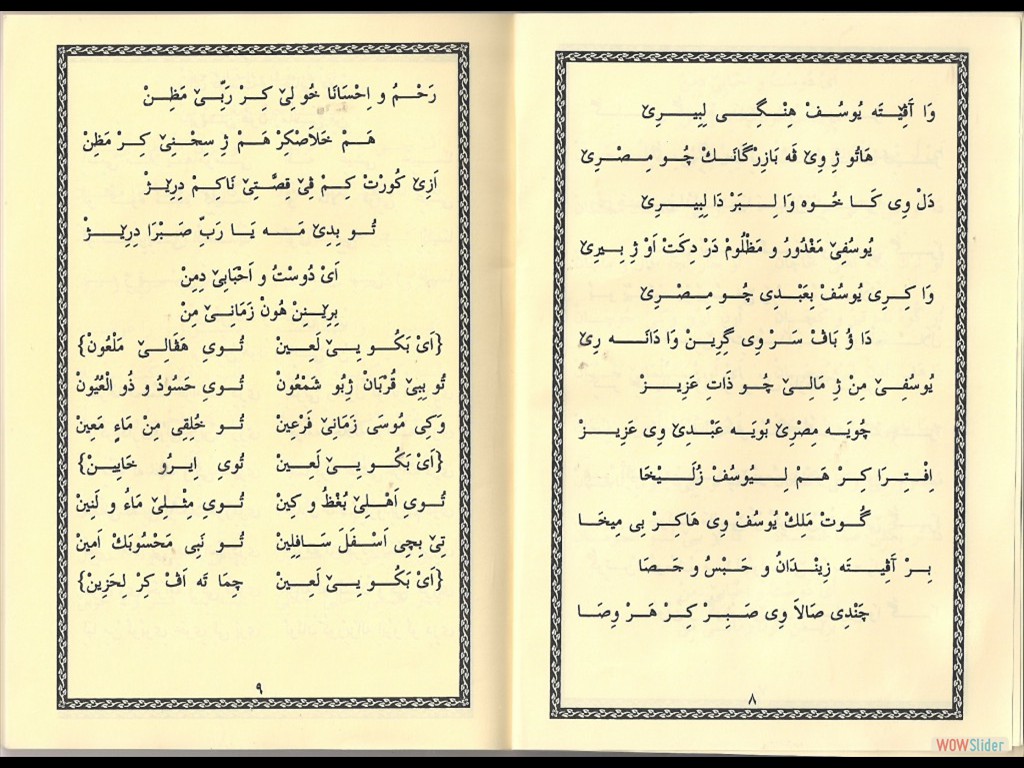 وَا آڤِیْتَه یُوسُفْ هِنْگِی لِبِیرِیْ
هَاتُو ژِ وِیْ قَه بَازِرْگَانَكْ چُو مِصْرِیْ
دَلْ وِی کَا خُوه وَا لِبَرْ دَا لِبِیرِیْ
یُوسُفِیْ مَغْدُورُ و مَظْلُومْ دَرْ دِکَتْ اَوْ ژِ بِیرِیْ
وَا کِرِی یُوسُفْ بعَبْدِی چُو مِصْرِیْ
دَا ؤُ بَاڤْ سَرْ وِی گِرِینْ وَا دَانَه رِیْ
یُوسُفِیْ مِنْ ژِ مَالِیْ چُو ذَاتِ عَزِیزْ
چُویَه مِصْرِیْ بُویَه عَبْدِیْ وِی عَزِیزْ
اِفْتِرَا کِرْ هَمْ لِیُوسُفْ زُلَیْخَا
گُوتْ مَلِكْ یُوسُفْ وِی هَاکِرْ بی مِیخَا
بِرْ آڤِیتَه زِینْدَانُ و حَبْسُ و حَصَا
چَنْدِی صَالاَ وِی صَبِرْ کِرْ هَرْ وِصَا
٨
رَحْمُ و اِحْسَانَا خُو لِیْ کِرْ رَبِّیْ مَظِنْ
هَمْ خَلاَصْکِرْ هَمْ ژِ سِجْنِیْ کِرْ مَظِنْ
اَزِیْ کُورْتْ کِمْ ڤیْ قِصَّتِیْ نَاکِمْ دِرِیْژْ
تُو بِدِیْ مَه یَا رَبِّ صَبْرَا دِرِیْژْ
اَیْ دُوسْتُ و اَحْبَابِیْ دِمِنْ
بِرِیْنِنْ هُونْ زَمَانِیْ مِنْ
{اَیْ بَکُو یِیْ لَعِینْ تُوی هَڤَالِیْ مَلْعُونْ}
تُو بِبِیْ قُرْبَانْ ژِبُو شَمْعُونْ تُوی حَسُودُ و ذُو الْعُیُونْ
وَکِی مُوسَی زَمَانِیْ فَرْعِینْ تُو خُلِقِی مِنْ مَاءٍ مَعِینْ
{اَیْ بَکُو یِیْ لَعِینْ تُوی اِیرُو خَایِینْ}
تُوی اَهْلِیْ بُغْظُ و کِینْ تُوی مِثْلِیْ مَاءُ و لَنِینْ
تِیْ بِچِی اَسْفَلَ سَافِلِینْ تُو نَبِی مَحْسُوبَكْ اَمِینْ
{اَیْ بَکُو یِیْ لَعِینْ چِمَا تَه اَڤْ کِرْ لِحَزِینْ}
٩
WOWSlider